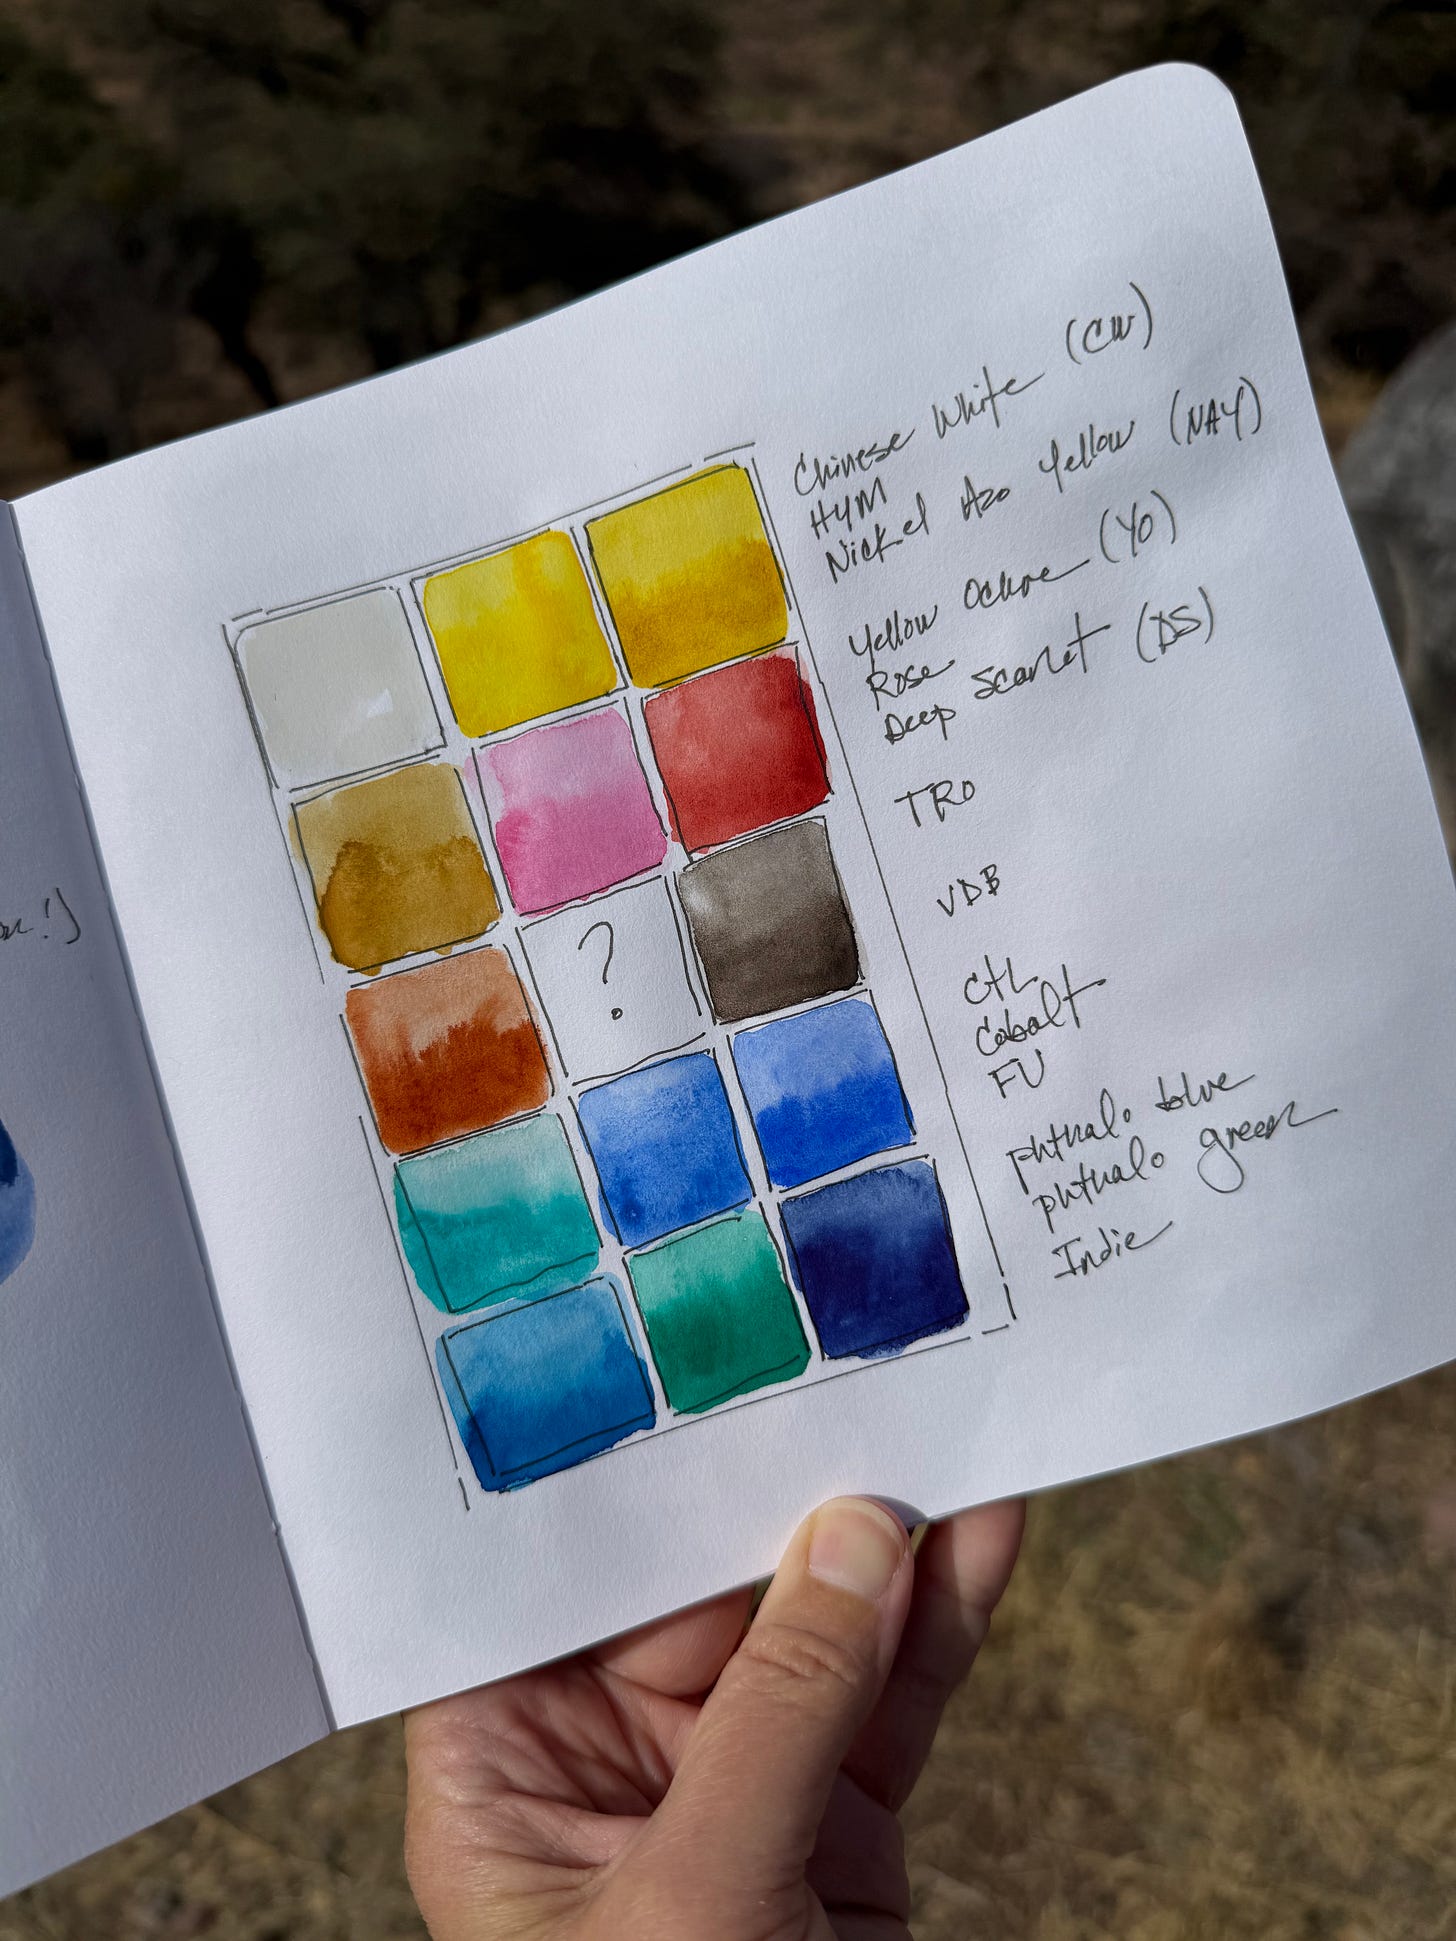 ?
Chinese White (CW)
HYM
Nickel Azo Yellow (NAY)
Yellow Ochre (YO)
Rose
Deep Scarlet (DS)
TRO
VDB
CTL
Cobalt
FU
phthalo blue
phthalo green
Indie